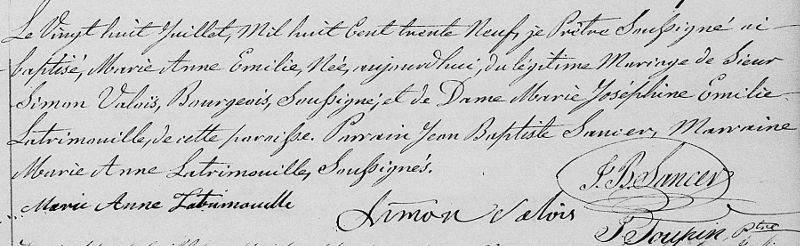 Le Vingt huit Juillet, Mil huit Cent trente Neuf, je Prêtre Soussigné ai
baptisé, Marie Anne Emilie, Née, aujourd'hui, du légitime Mariage de Sieur
Simon Valois, Bourgeois, Soussigné, et de Dame Marie Joséphine Emilie
Latrimouille, de cette paroisse. Parrain Jean Baptiste Sancer, Marraine
Marie Anne Latrimouille, Soussignés.
J. B. Sancer
Marie Anne Latrimouille
Simon Valois
P. Toupin, Ptre